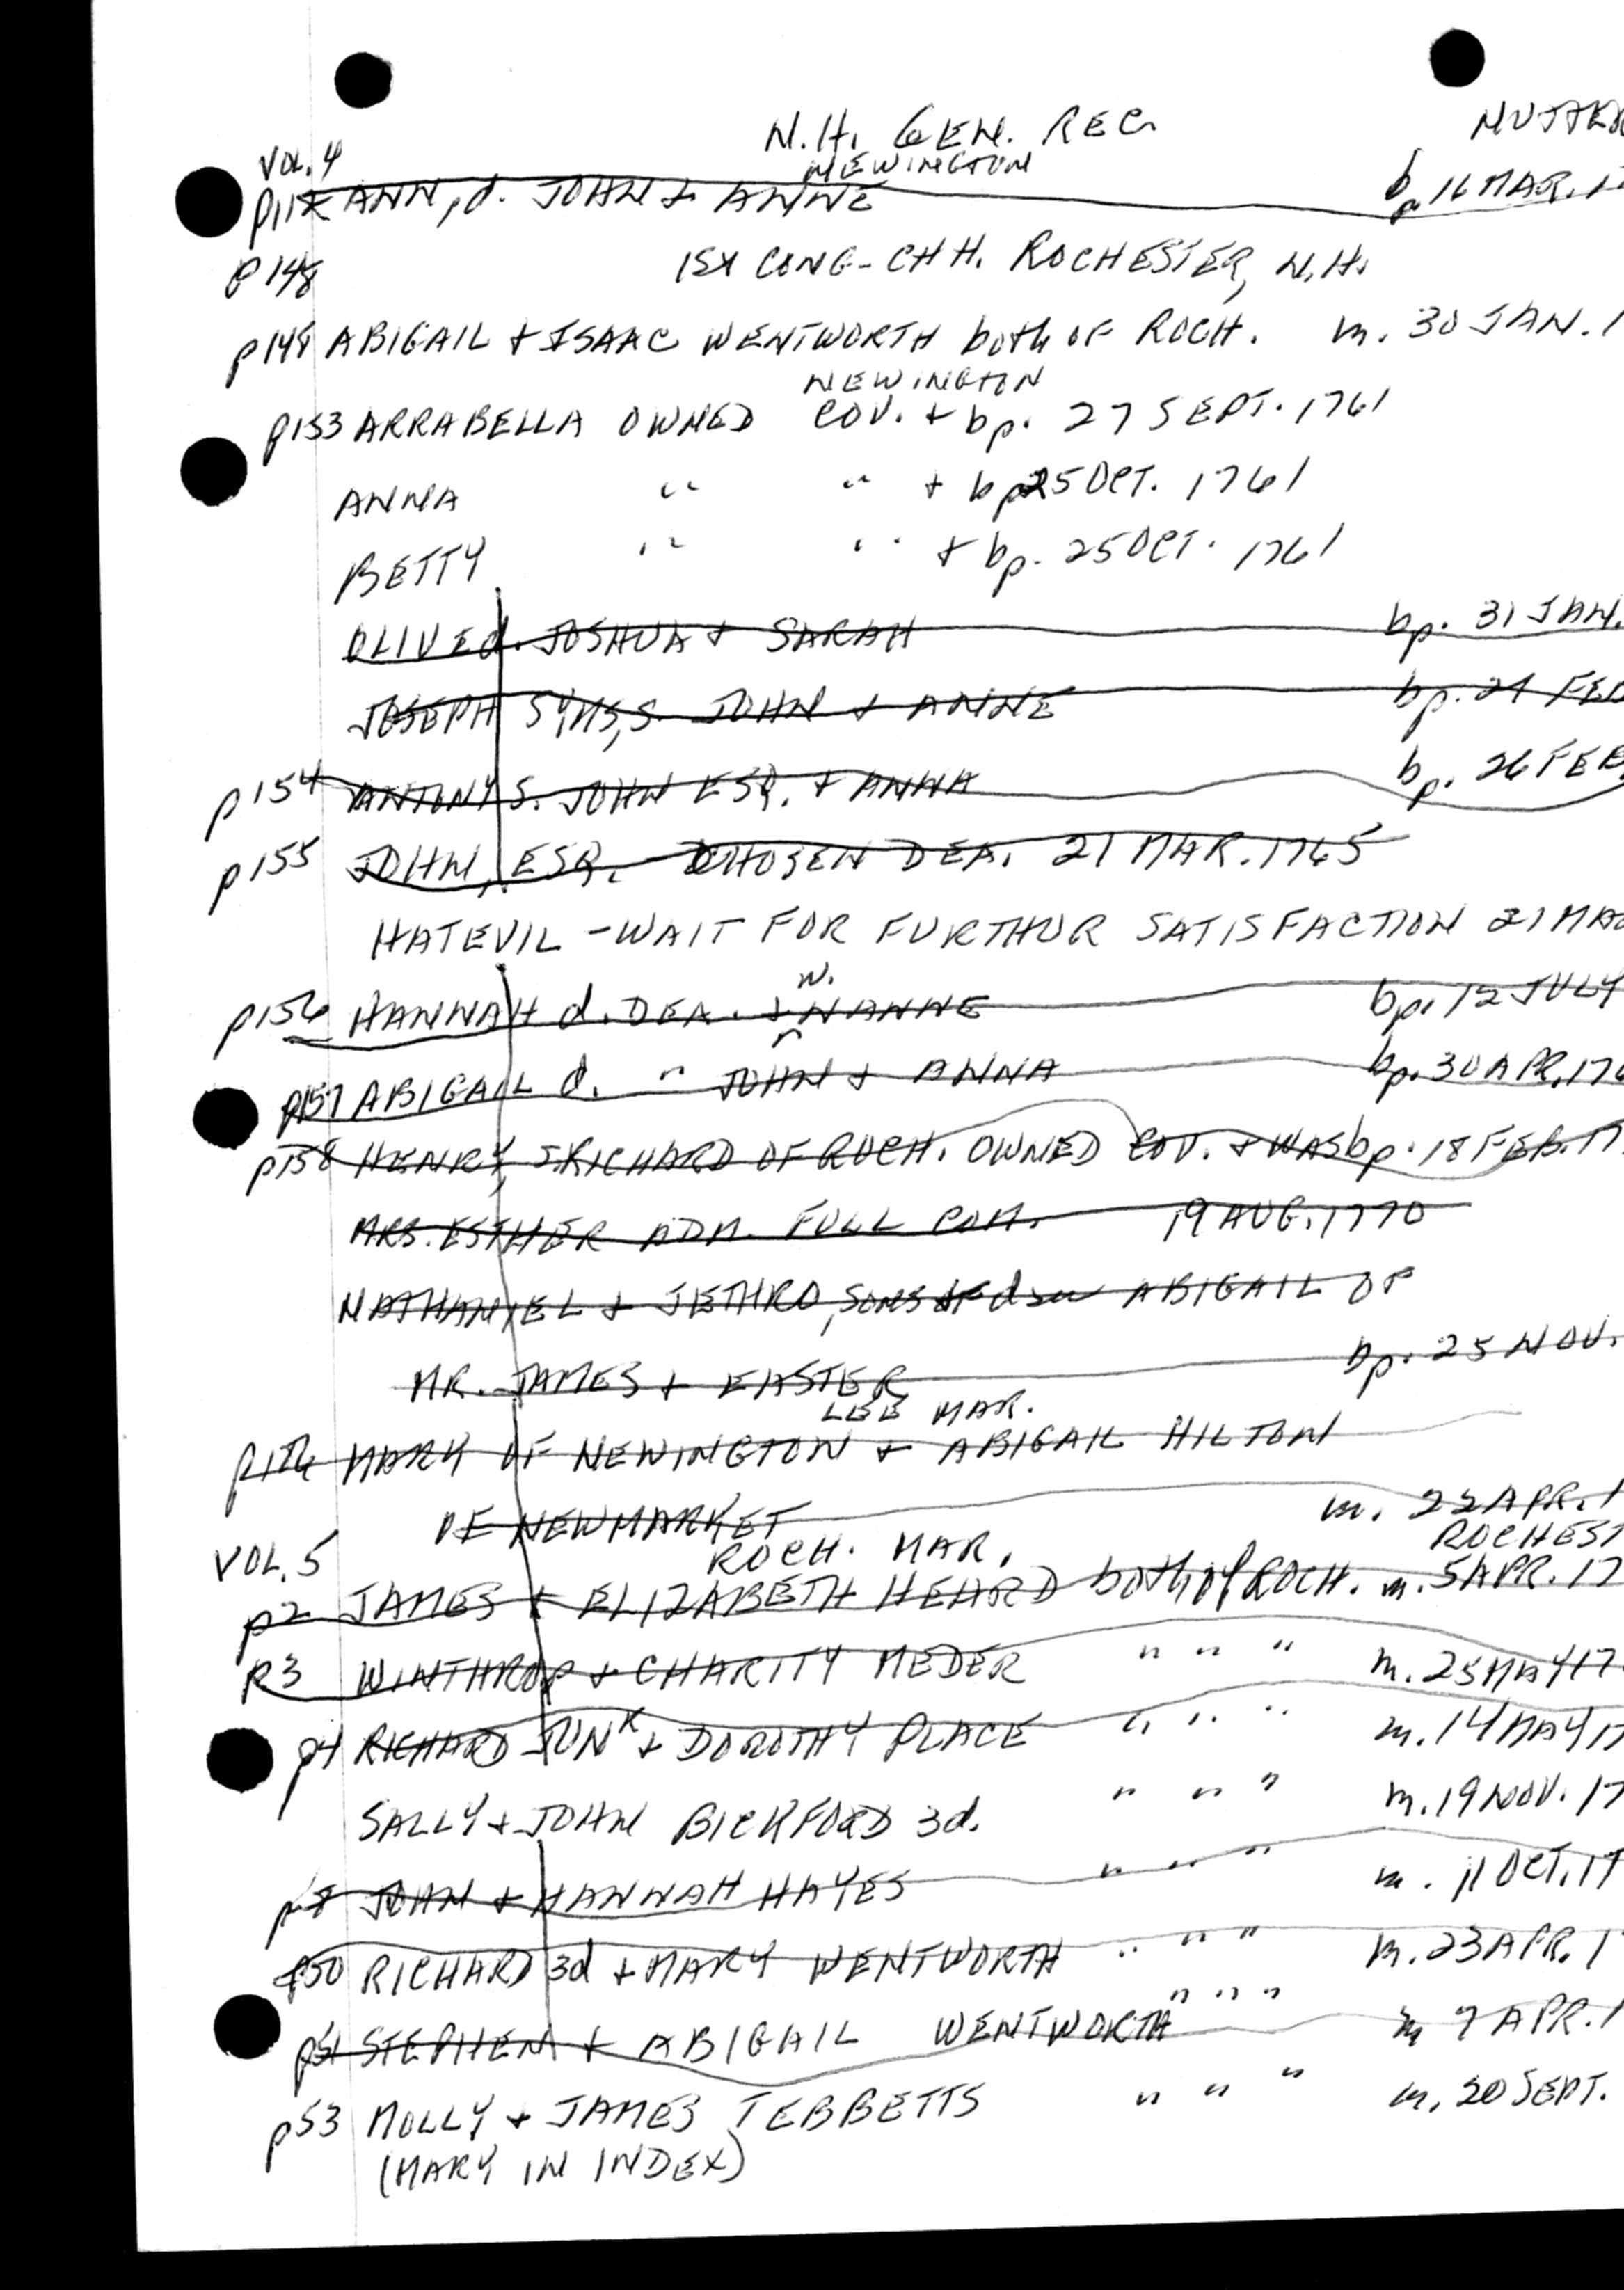 N.H. GEN. REC.
VOL. 4 NEWINGTON
ANN, d. JOHN & ANNE bp. 16 MAR.
p148 1st CONG-CHH. ROCHESTER, N.H.
p148 ABIGAIL & ISAAC WENTWORTH both OF ROCH. m. 30 JAN.
NEWINGTON
p153 ARRABELLA OWNED COV. & bp. 27 SEPT. 1761
ANNA " " & bp 25 OCT. 1761
BETTY " " & bp. 25 OCT. 1761
OLIVE d. JOSHUA & SARAH bp. 31 JAN.
JOSEPH SYMS, S. JOHN & ANNE bp. 21 FEB
p154 ANTONY S. JOHN ESQ. & ANNA bp. 26 FEB
p155 JOHN, ESQ. - CHOSEN DEA. 21 MAR. 1765
HATEVIL - WAIT FOR FURTHUR SATISFACTION 21 MAR
N.
p156 HANNAH d. DEA. & ANNE bp. 12 JULY
p157 ABIGAIL d. " JOHN & ANNA bp. 30 APR. 176
p158 HENRY, S. RICHARD OF ROCH. OWNED COV. & WAS bp. 18 FEB. 17
MRS. ESTHER ADM. FULL COM. 19 AUG. 1770
NATHANIEL & JETHRO, SONS & d ABIGAIL OF
MR. JAMES & EASTER bp. 25 NOV.
LEE MAR.
MARY OF NEWINGTON & ABIGAIL HILTON
OF NEWMARKET m. 22 APR. 1
VOL. 5 ROCH. MAR. ROCHEST
p2 JAMES & ELIZABETH HEARD both of ROCH. m. 5 APR. 17
p3 WINTHROP & CHARITY MEDER " " " m. 25 MAY 17
p4 RICHARD JUNR & DOROTHY PLACE " " " m. 14 MAY 17
SALLY & JOHN BICKFORD 3d. " " " m. 19 NOV. 17
p8 JOHN & HANNAH HAYES " " " m. 11 OCT. 17
p50 RICHARD 3d & MARY WENTWORTH " " " m. 23 APR. 1
p51 STEPHEN & ABIGAIL WENTWORTH " " " m 7 APR. 1
p53 MOLLY & JAMES TEBBETTS " " " m. 20 SEPT.
(MARY IN INDEX)